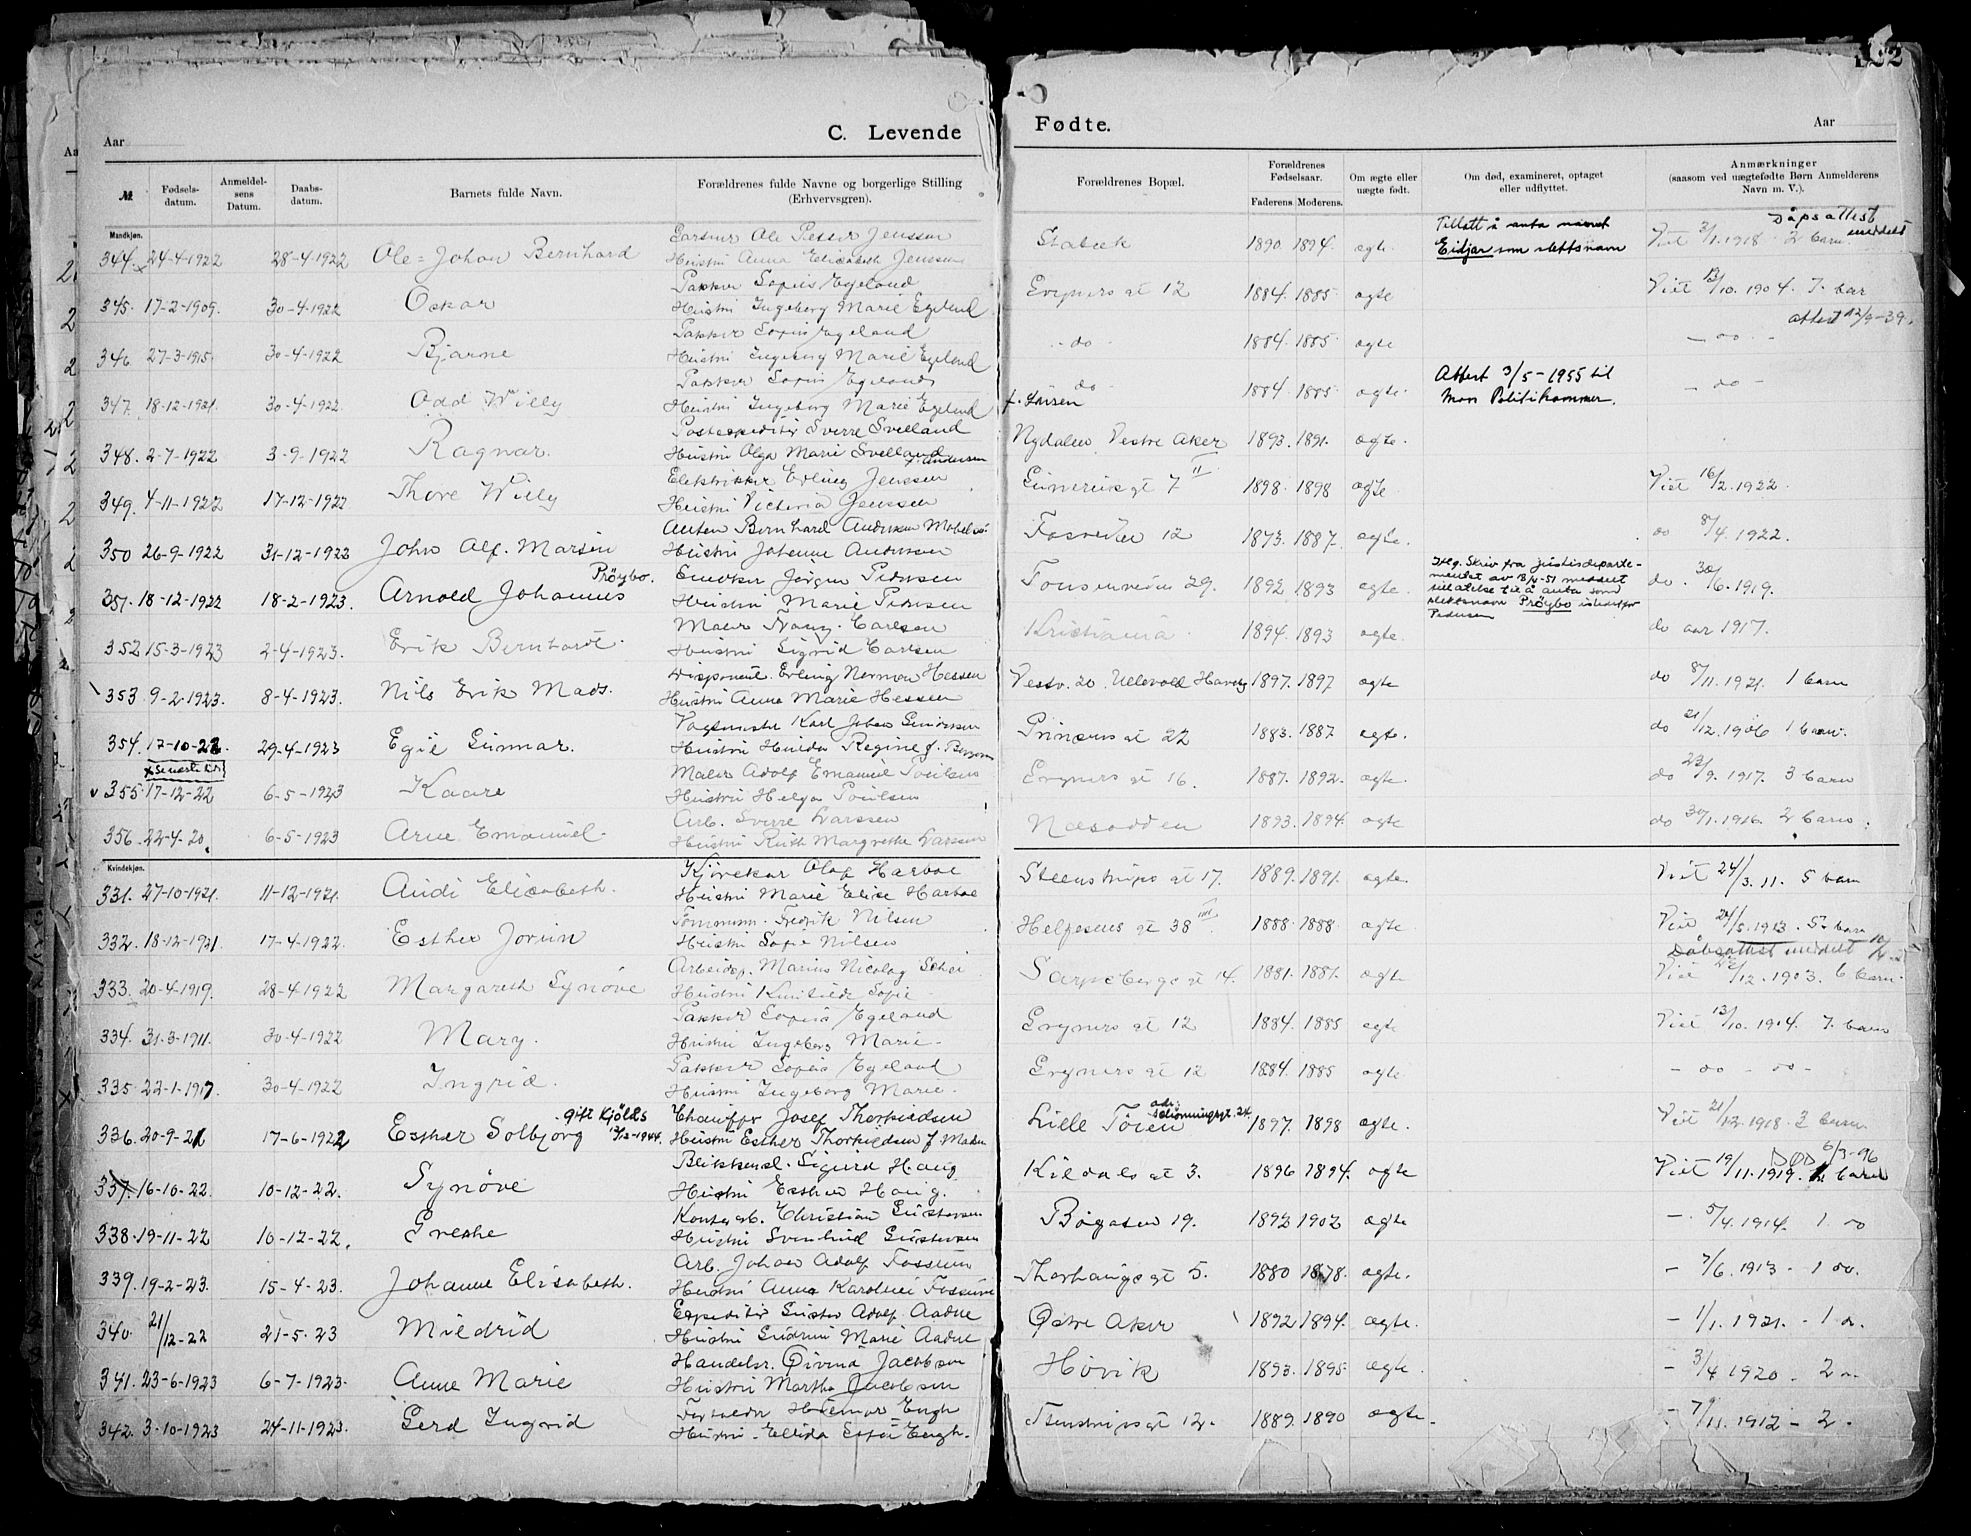 122
Aar
C. Levende
Fødte.
Aar
№
Fødsels-
datum.
Anmeldel-
sens
Datum.
Daabs-
datum.
Barnets fulde Navn.
Forældrenes fulde Navne og borgerlige Stilling
(Erhvervsgren).
Forældrenes Bopæl.
Forældrenes
Fødselsaar.
Faderens. Moderens.
Om ægte eller
uægte født.
Om død, examineret, optaget
eller udflyttet.
Anmærkninger
(saasom ved uægtefødte Børn Anmelderens
Navn m. V.).
Mandkjøn.
344. 24-4-1922 28-4-1922 Ole-Johan Bernhard Ole Petter Jenssen
Hustru Anna Elisabeth Jenssen
Stabæk 1890. 1894. ægte
Tillatt å anta navnet
Eidjar som slettsnavn
Dåpsattest
meddelt
Viet 3/1.1918 2 barn
345. 17-2-1909. 30-4-1922 Oskar Pakker Sofus Egeland
Hustru Ingeborg Marie Egelund
Grüners gt 12 1884. 1885. ægte Viet 13/10. 1904. 7. bar
346. 27-3-1915 30-4-1922 Bjarne Pakker Sofus Egeland
Hustru Ingeborg Marie Egelund
- do - 1884. 1885. ægte - do -
attest 12/9-39.
347. 18-12-1921. 30-4-1922. Odd Willy Pakker Sofus Egelands
Hustru Ingeborg Marie Egelund
f. Larsen
do 1884. 1885. ægte.
Attest 3/5-1955 til
Moss Politikammer.
- do -
348. 2-7-1922 3-9-1922 Ragnar. Postexpeditør Sverre Svelland
Hustru Olga Marie Svelland
f. Andersen
Nydalen Vestre Aker 1893. 1891. ægte.
349. 4-11-1922 17-12-1922 Thore Willy Elektriker Erling Jenssen
Hustru Victoria Jenssen
Gunerius gt 7 II 1898. 1898 ægte Viet 16/2.1922.
350 26-9-1922 31-12-1922 John Alf. Martin Anton Bernhard Andersen
Hustru Johanne Andersen
Fosveien 12 1873. 1887. ægte. do 8/4. 1922.
351. 18-12-1922 18-2-1923. Arnold Johannes
Prøybo.
Snedker Jørgen Pedersen
Hustru Marie Pedersen
Tonsenveien 29. 1892 1893 ægte.
Iflg. Skriv fra Justisdeparte-
mentet av meddelt
tillatelse til å anta som
slektsnavn Prøybo istedetfor
Pedersen
do. 30/6.1919.
352 15-3-1923 2-4-1923. Erik Bernhardt. Maler Franz Carlsen
Hustru Sigrid Carlsen
Kristiania 1894. 1893 ægte. do aar 1917.
353 9-2-1923. 8-4-1923. Nils Erik Mads. Disponent. Erling Norman Hessen
Hustru Anna Marie Hessen
Vestv. 20. Ulevold Haveby 1897. 1897 ægte do 8/11.1921. 1 barn
354. 17-10-22. 29-4-1923 Egil Gunnar. Vognmester Karl Johan Gundersen
Hustru Hulda Regine f.
Prinsens gt 22 1883. 1887 ægte. do 21/12.1906 1 barn.
355 17-12-22 6-5-1923 Kaare Maler Adolf Emanuel Poulsen
Hustru Helga Poulsen
Grüners gt 16. 1887. 1892. ægte do 22/9. 1917. 3 barn
356. 22-4-20. 6-5-1923 Arne Emanuel. Arb. Sverre Larssen
Hustru Ruth Margrethe Larssen
Næsodden 1893. 1894. ægte do 30/1.1916. 2 barn.
Kvindekjøn.
331. 27-10-1921. 11-12-1921. Andi Elisabeth. Kjørekar Olaf Harboe
Hustru Marie Elise Harboe
Steenstrups gt 17. 1889. 1891. ægte. Viet 24/3.11. 5 barn
332. 18-12-1921. 17-4-1922. Esther Jorun Tømmerm. Fredrik Nilsen
Hustru Sofie Nilsen
Helgesens gt 38 III 1888. 1888. ægte. Viet 24/5.1913. 5. barn
333. 20-4-1919. 28-4-1922 Margareth Synøve Arbeidsf. Marius Nicolay Schei
Hustru Sofie
Sarpsborgs gt 14. 1881. 1881. ægte
Dåbsattest meddelt
Viet /12.1903. 6 barn.
334. 31-3-1911. 30-4-1922 Mary. Pakker Sofus Egeland
Hustru Ingeborg Marie.
Grüners gt 12 1884. 1885 ægte Viet 13/10.1904. 7. barn
335. 22-1-1917 30-4-1922 Ingrid. Pakker Sofus Egeland
Hustru Ingeborg Marie.
Grüners gt 12 1884. 1885 ægte. - do - do -
336. 20-9-21 17-6-1922 Esther Solbjørg
gift Kjölås
12/2-1944.
Chauffør Josef Thorkildsen
Hustru Esther Thorkildsen f.
Lille Tøien
adr.
1897. 1898 ægte. Viet 21/12.1918. 3 barn
337. 16-10-22. 10-12-22. Synøve Blikkensl. Sigurd Haug
Hustru Esther Haug.
Kildals gt 3. 1896 1894. ægte
DØD 6/3-96
Viet 19/11.1919. barn
338. 19-11-22 10-12-22. Grethe Christian Gustavsen
Hustru Svanhild Gustavsen
Bøgaten 19. 1892 1902 ægte - 5/4.1914. 1. do
339. 19-2-23. 15-4-23. Johanne Elisabeth. Arb. Johan Adolf Fossum
Hustru Anna Karoline Fossum
Thorhaugs gt 5. 1880 1878. ægte. - 7/6.1913 - 1 do.
340. 21/12-22 21-5-23 Mildrid Expeditør Gustav Adolf Aadne
Hustru Gudrun Marie Aadne
Østre Aker 1892 1894. ægte. - 1/1.1921. - 1 do.
341. 23-6-1923 6-7-1923. Anne Marie Handelsr. Øivind Jacobsen
Hustru Martha Jacobsen
Høvik 1893. 1895. ægte. - 3/4 1920. 2
342. 3-10-1923 24-11-1923. Gerd Ingrid Hilmar Engh
Hustru Ellida Engh.
Steenstrups gt 12. 1889. 1890 ægte. - 7/11.1912 - 2.